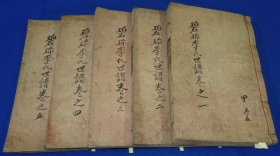 碧珍李氏世譜卷之一
甲 共五
碧珍李氏世譜卷之二
碧珍李氏世譜卷之三
碧珍李氏世譜卷之四
碧珍李氏世譜卷之五